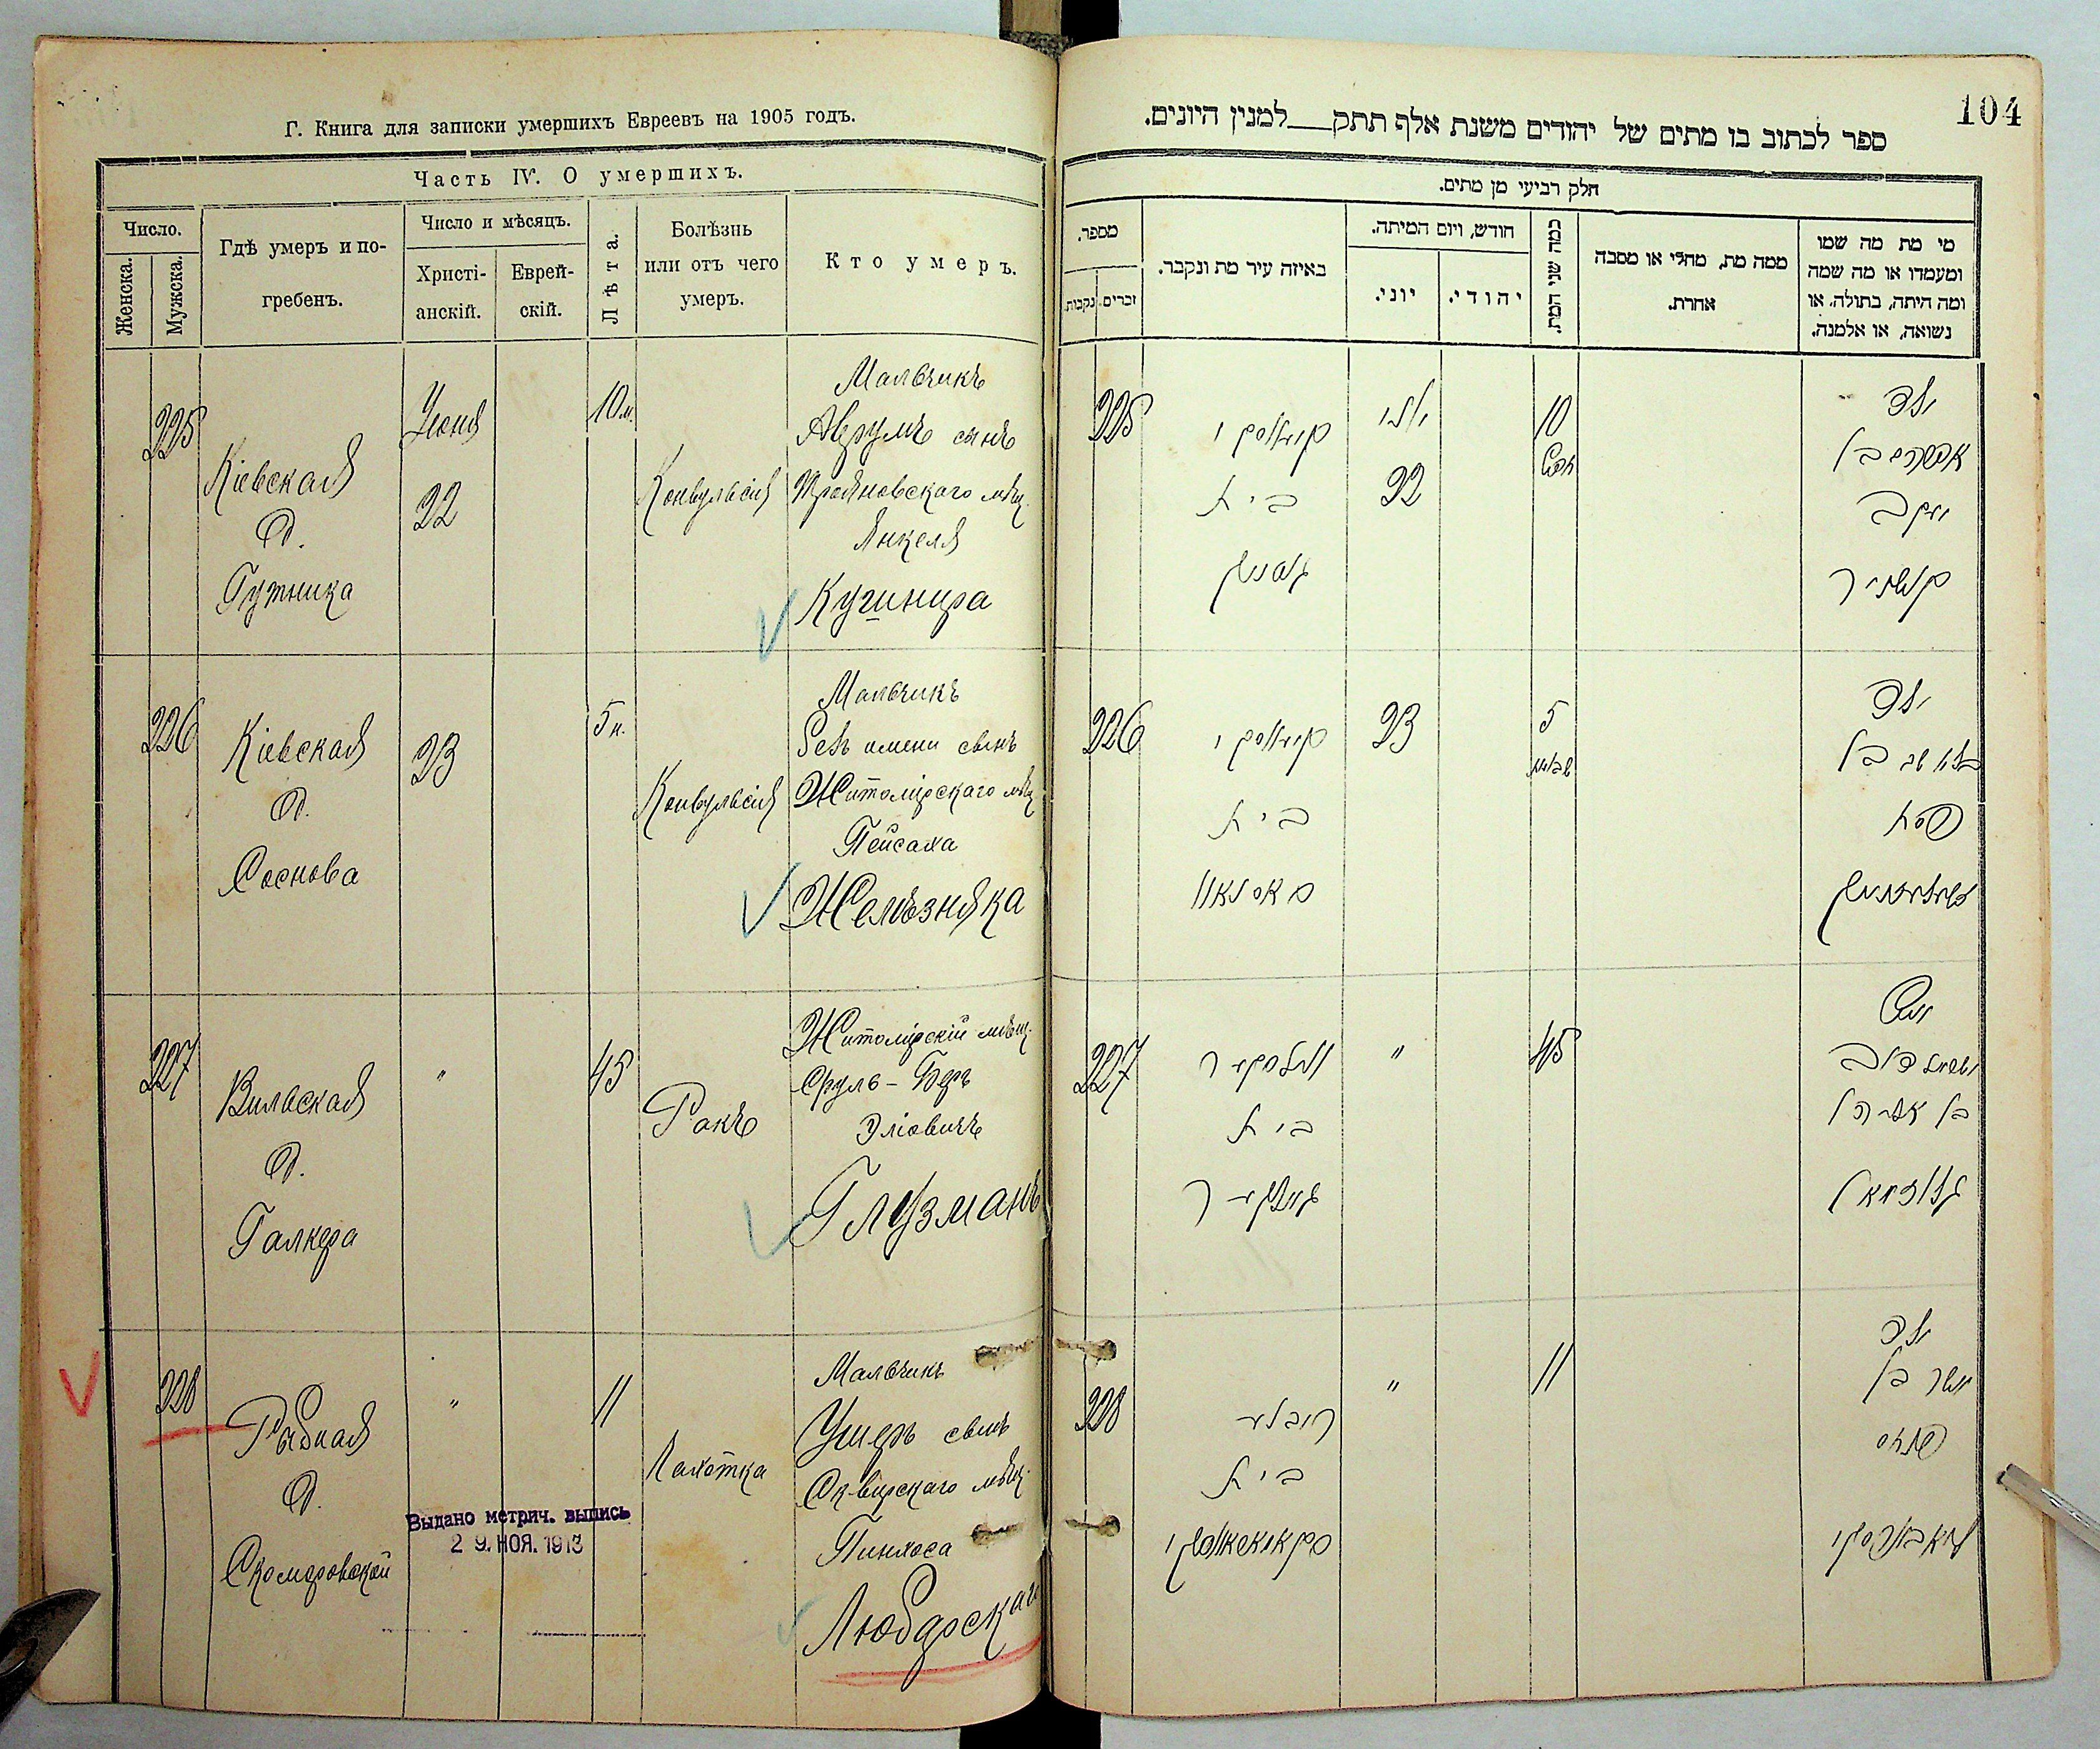 Г. Книга для записки умершихъ Евреевъ на 1905 годъ.
Часть IV. О умершихъ.
Число.
Женска.
Мужска.
Гдѣ умеръ и по-
гребенъ.
Число и мѣсяцъ.
Христі-
анскій.
Еврей-
скій.
Лѣта.
Болѣзнь
или отъ чего
умеръ.
Кто умеръ.
225
Кіевская
д.
Гутника
Іюня
22
10 м.
Конвульсія
Мальчикъ
Аврумъ сынъ
Трояновского мѣщ.
Янкеля
Кушнира
226
Кіевская
д.
Соснова
23
5 н.
Конвульсія
Мальчикъ
безъ имени сынъ
Житомірскаго мѣщ.
Пейсаха
Желѣзняка
227
Вильская
д.
Галкера
"
45
Ракъ
Житомірскій мѣщ.
Сруль-Беръ
Эліовичъ
Глузманъ
228
Рыбная
д.
Скоморовской
"
11
Чахотка
Мальчикъ
Ушеръ сынъ
Сквирскаго мѣщ.
Пинхоса
Любарскаго
Выдано метрич. выпись
29. НОЯ. 1913
104
ספר לכתוב בו מתים של יהודים משנת אלף תתק__למנין היונים.
חלק רביעי מן מתים.
מספר.
נקבות.
זכרים.
באיזה עיר מת ונקבר.
חודש, ויום המיתה.
יוני.
יהודי.
כמה שני המת.
ממה מת, מחלי או מסבה
אחרת.
מי מת מה שמו
ומעמדו או מה שמה
ומה היתה, בתולה, או
נשואה, או אלמנה.
225
בית
יוני
22
10
ילד
אברהם בן
יעקב
קושניר
226
בית
23
5
ילד
בלא שם בן
פסח
227
בית
"
45
איש
ישראל דוב
בן אליהו
גלוזמאן
228
בית
"
11
ילד
אשר בן
פנחס